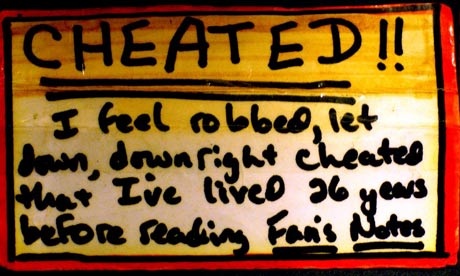 CHEATED!!
I feel robbed, let
down, downright cheated
that I've lived 26 years
before reading Faris Notes